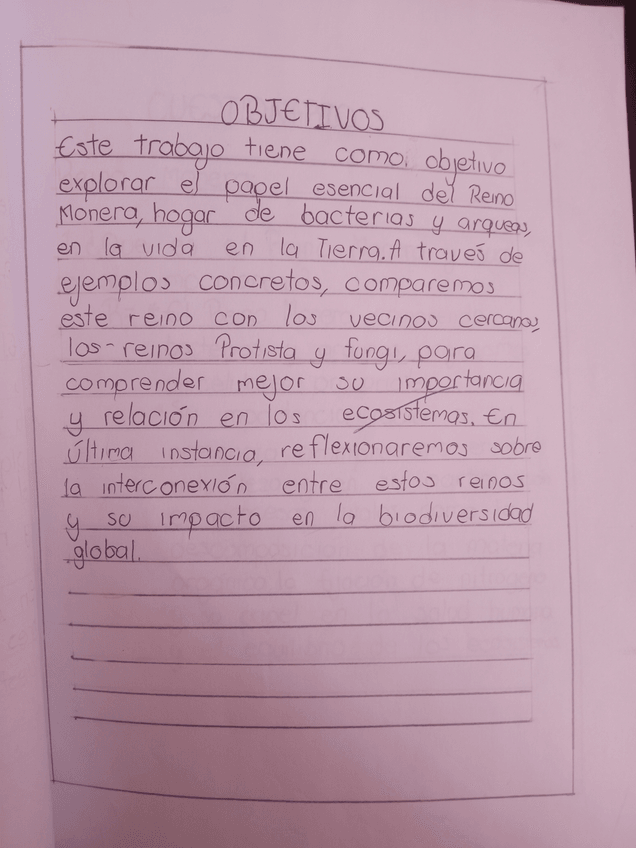 OBJETIVOS
Este trabajo tiene como. objetivo
explorar el papel esencial del Reino
Monera, hogar de bacterias y arqueas,
en la vida en la Tierra. A través de
ejemplos concretos, comparemos
este reino con los vecinos cercanos,
los-reinos Protista y fungi, para
comprender mejor su importancia
y relación en los ecosistemas. En
última instancia, reflexionaremos sobre
la interconexión entre estos reinos
y su impacto en la biodiversidad
global.